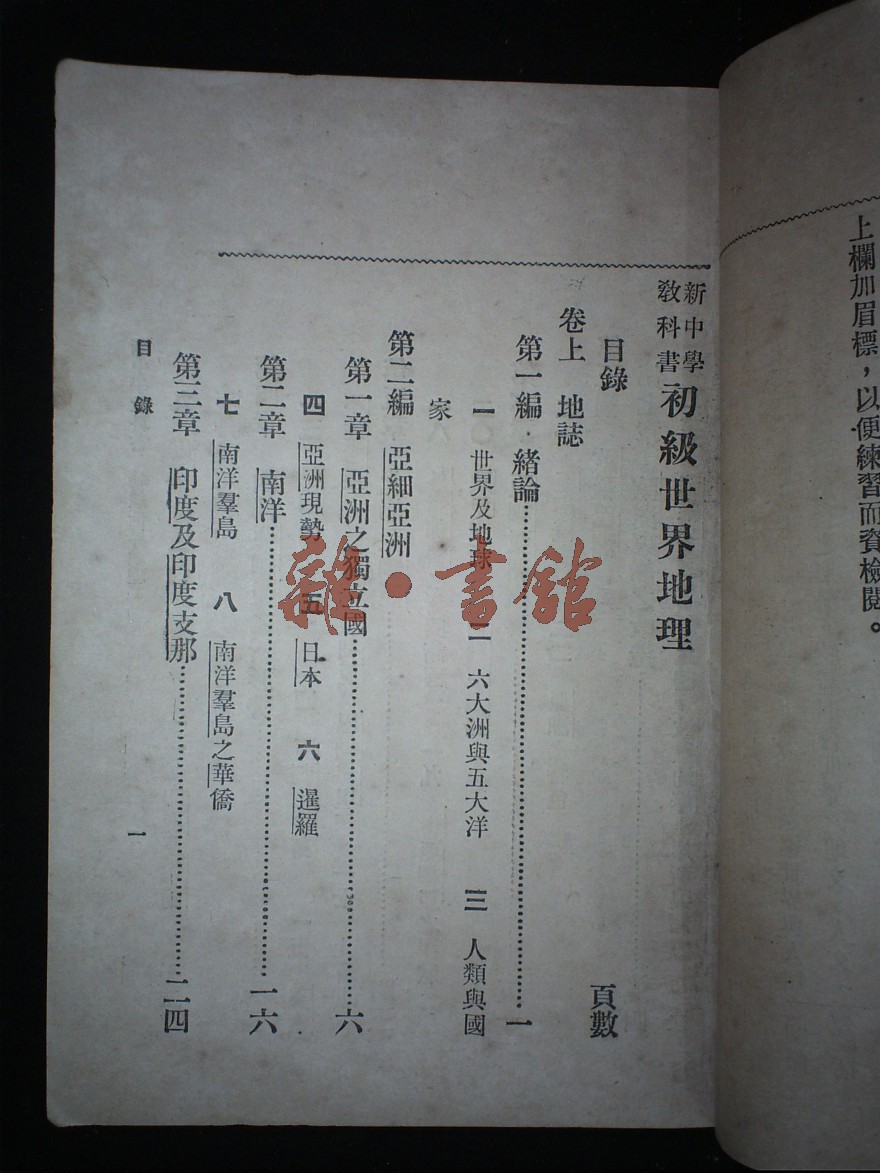 上欄加眉標，以便練習而資檢閱。
新中學
教科書
初級世界地理
目錄 頁數
卷上 地誌
第一編 緒論……一
一 世界及地球 二 六大洲與五大洋 三 人類與國
家
第二編 亞細亞洲
第一章 亞洲之獨立國……六
四 亞洲現勢 五 日本 六 暹羅
第二章 南洋……一六
七 南洋羣島 八 南洋羣島之華僑
第三章 印度及印度支那……二四
目錄 一
雜·書館